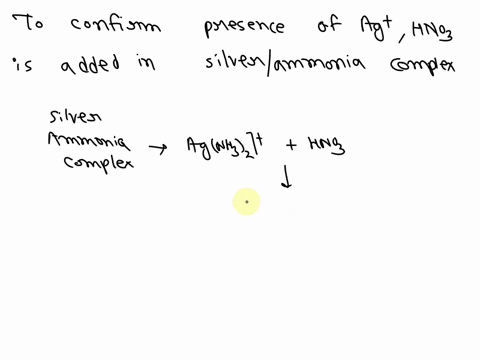 To confirm presence of Ag+, HNO3
is added in silver/ammonia complex
silver
Ammonia
complex → Ag(NH3)2]+ + HNO3
↓